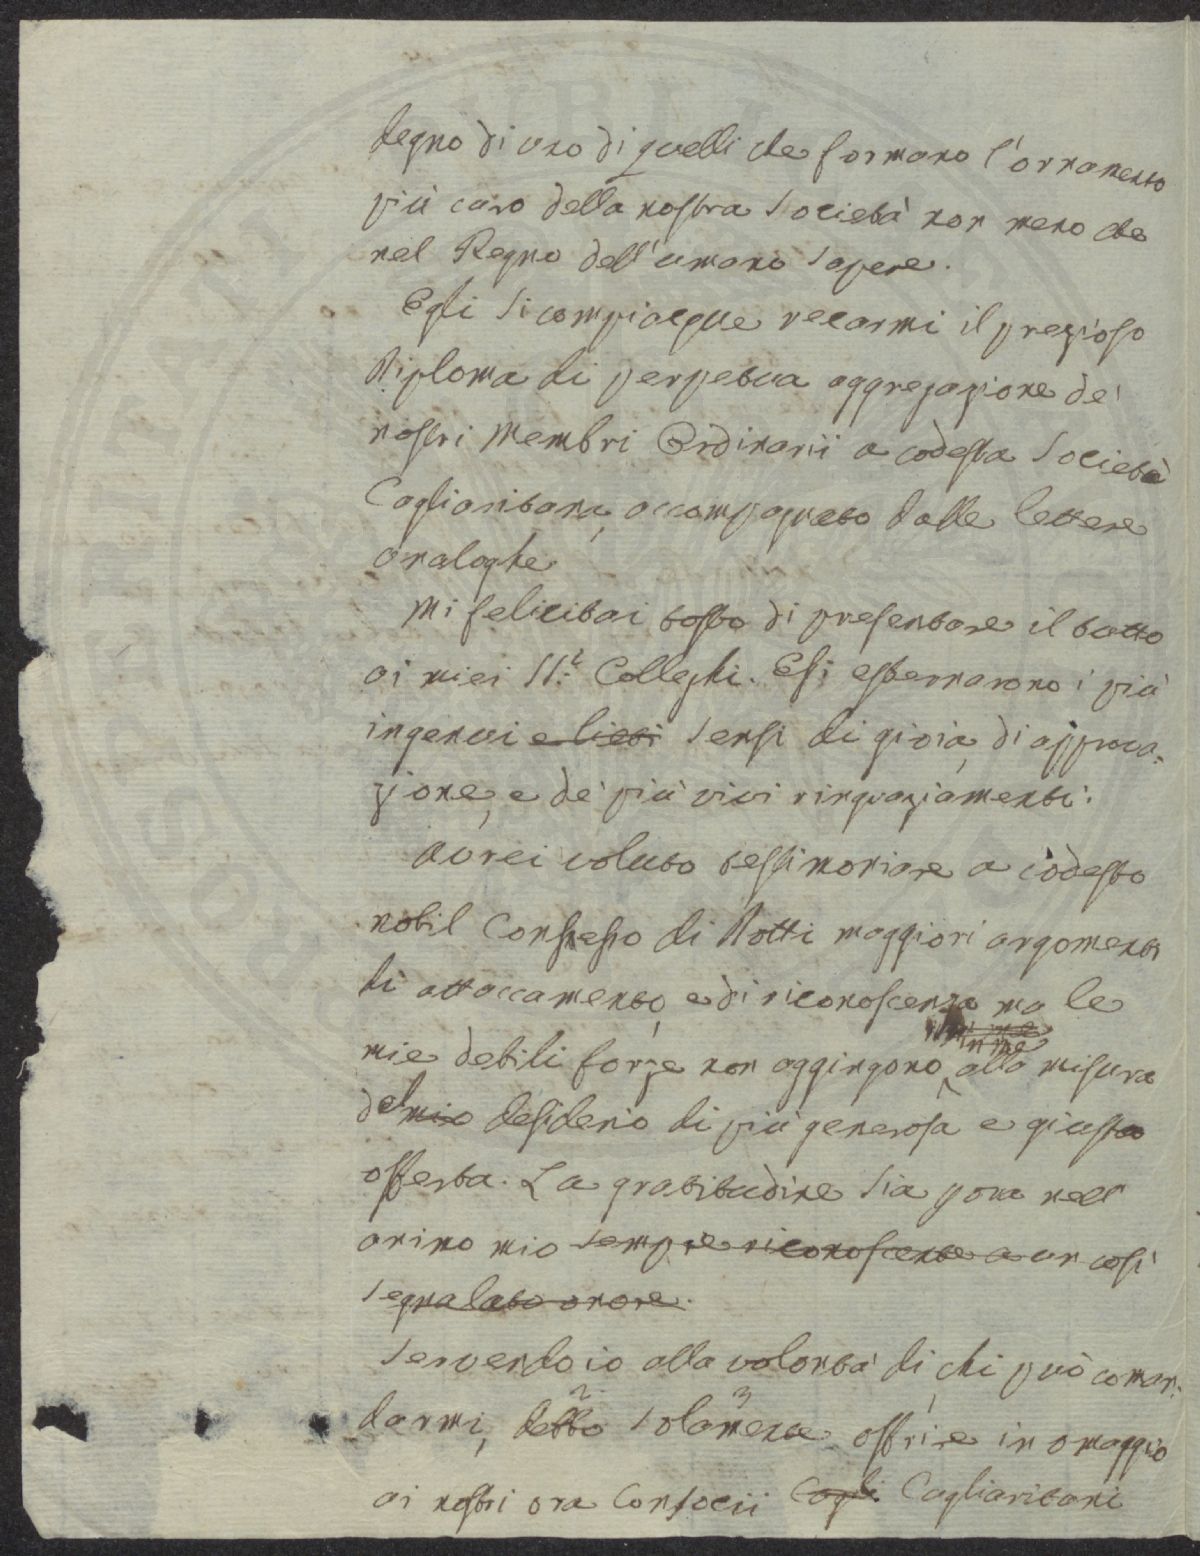 degno di uno di quelli che formano l'ornamento
più caro della nostra Società non meno che
nel Regno dell'umano sapere.
Egli si compiacque recarmi il prezioso
Diploma di perpetua aggregazione de'
nostri Membri Ordinarii a codesta Società
Cagliaritana, accompagnato dalle lettere
analoghe.
Mi felicitai tosto di presentare il tutto
ai miei SS.i Colleghi. Essi esternarono i più
ingenui e lieti sensi di gioia, di approva-
zione, e de' più vivi ringraziamenti.
Avrei voluto testimoniare a codesto
nobil Consesso di Dotti maggiori argomenti
di attaccamento, e di riconoscenza ma le
mie debili forze non aggiungono alla misura
del mio desiderio di più generosa e giusta
offerta. La gratitudine sia nell'
animo mio sempre riconoscente a un così
segnalato onore.
Servendo io alla volontà di chi può coman-
darmi, debbo solamente offrire in omaggio
ai nostri ora Consocii Cagli Cagliaritani